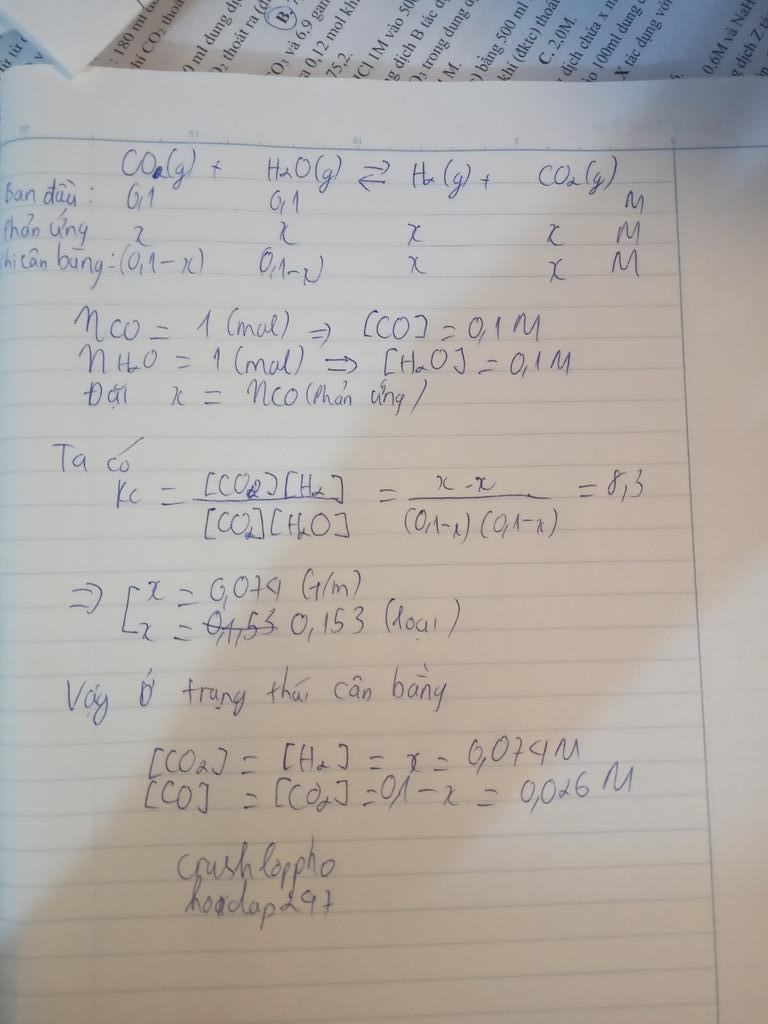 : 180 ml
hí CO₂ thoá
0 ml dung dị
O₂ thoát ra (đ
B.
CO₃ và 6,9 gam
a 0,12 mol kh
75,2.
HCl 1M vào 50
g dịch B tác d
O₃ trong dung d
M.
) bằng 500 ml
khí (đktc) thoát
C. 2,0M.
dịch chứa x m
o 100ml dung d
X tác dụng vớ
0,6M và NaH
g dịch Z tá
20 15 10 5 0
CO₂(g) + H₂O(g) ⇌ H₂(g) + CO₂(g)
Ban đầu: 0,1 0,1 M
Phản ứng x x x x M
hi cân bằng: (0,1-x) 0,1-x) x x M
nCO = 1 (mol) ⇒ [CO] = 0,1M
nH₂O = 1 (mol) ⇒ [H₂O] = 0,1M
Đặt x = nCO (phản ứng)
Ta có
Kc = [CO₂][H₂] / [CO₂][H₂O] = x.x / (0,1-x)(0,1-x) = 8,3
⇒ [ x = 0,074 (t/m)
x = 0,153 0,153 (loại)
Vậy Ở trạng thái cân bằng
[CO₂] = [H₂] = x = 0,074M
[CO] = [CO₂] = 0,1-x = 0,026 M
Crushloppho
hoidap247